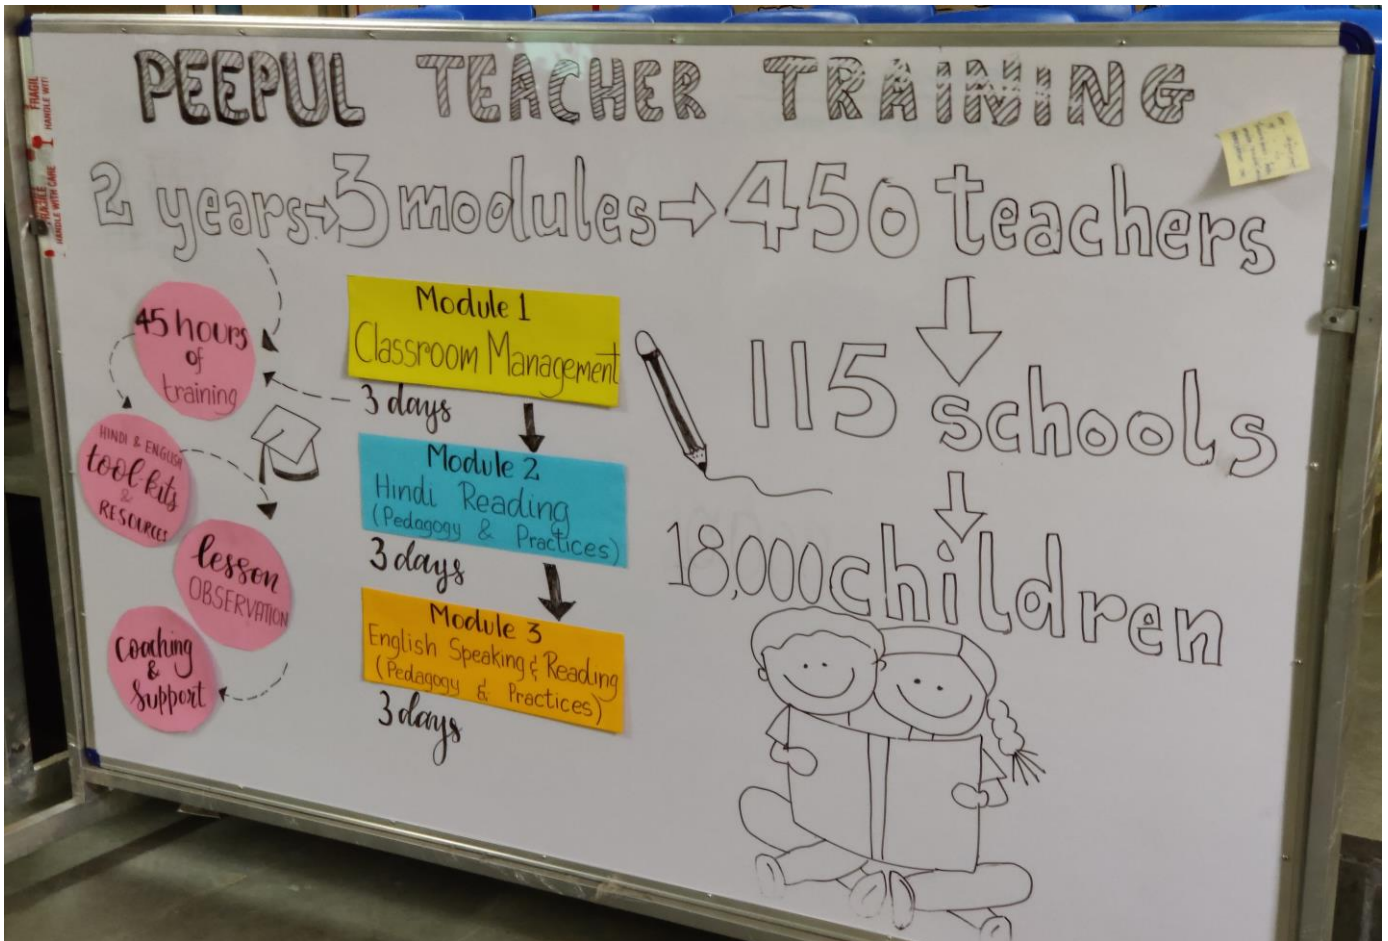 PEEPUL TEACHER TRAINING
2 years → 3 modules → 450 teachers
115 schools
18,000 children
45 hours
of
training
HINDI & ENGLISH
tool-kits
&
RESOURCES
lesson
OBSERVATION
Coaching
&
Support
Module 1
Classroom Management
3 days
Module 2
Hindi Reading
(Pedagogy & Practices)
3 days
Module 3
English Speaking & Reading
(Pedagogy & Practices)
3 days
HANDLE WITH CARE